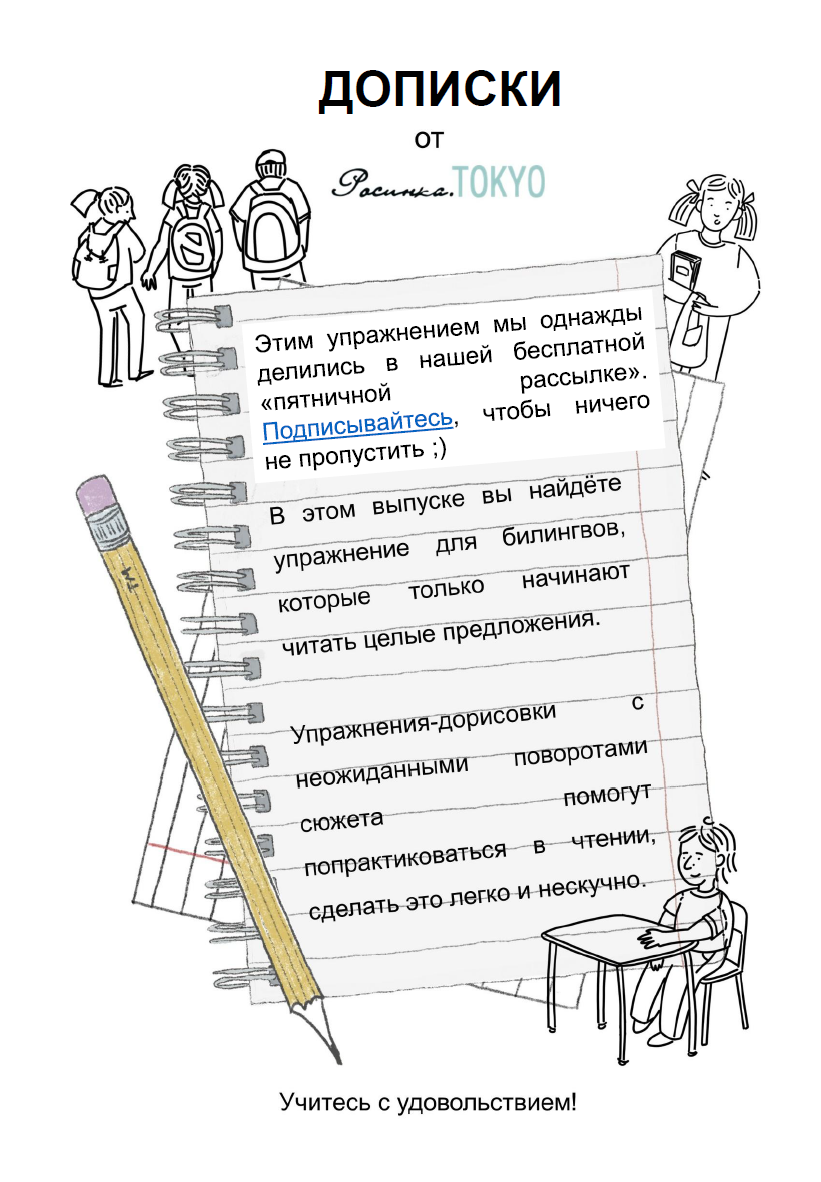 ДОПИСКИ
от
Росинка.TOKYO
Этим упражнением мы однажды
делились в нашей бесплатной
«пятничной рассылке».
Подписывайтесь, чтобы ничего
не пропустить ;)
В этом выпуске вы найдёте
упражнение для билингвов,
которые только начинают
читать целые предложения.
Упражнения-дорисовки с
неожиданными поворотами
сюжета помогут
попрактиковаться в чтении,
сделать это легко и нескучно.
Учитесь с удовольствием!